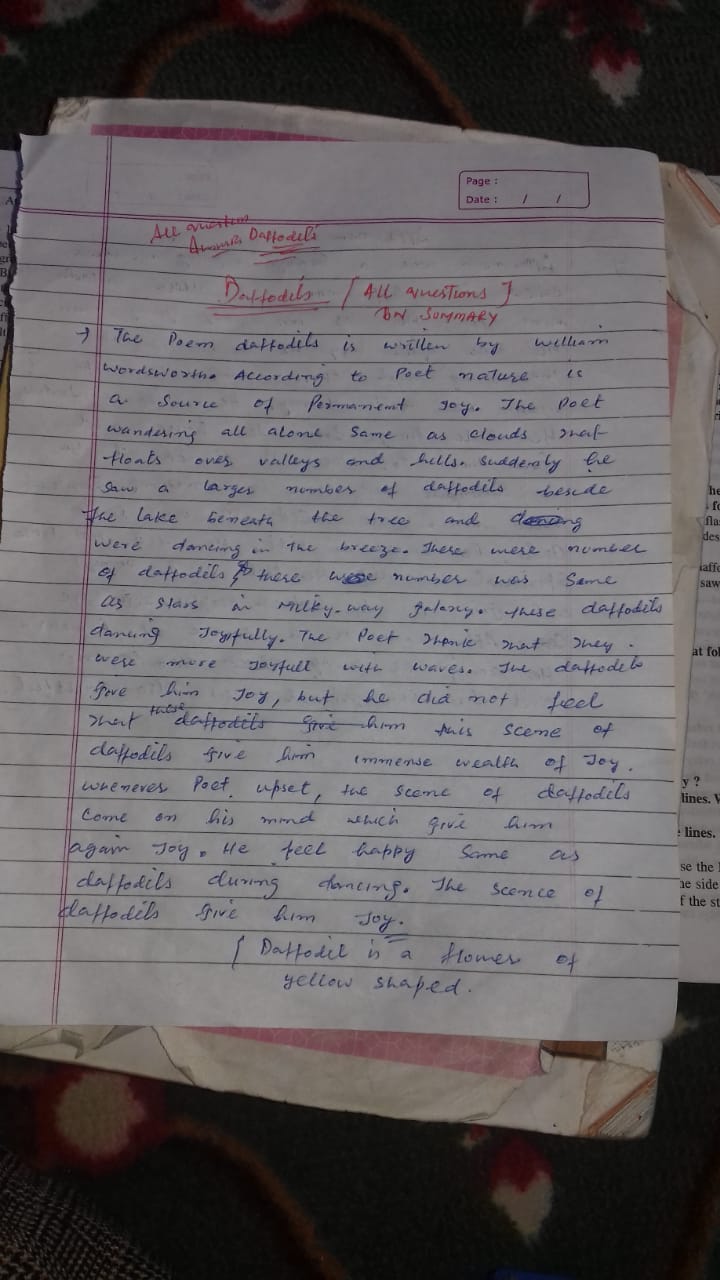 Page :
Date : / /
All question
Answers Daffodils
Daffodils [ All questions ]
ON SUMMARY
→ The Poem daffodils is written by William
Wordsworth. According to Poet nature is
a Source of Permanemt Joy. The Poet
wandering all alone Same as clouds that
floats over valleys and hills. Suddenly he
Saw a larger number of daffodils beside
the lake beneath the tree and dancing
were dancing in the breeze. There were number
of daffodils & there were number was Same
as stars in Milky-way galaxy. these daffodils
dancing Joyfully. The Poet think that they
were more Joyfull with waves. The daffodels
give him Joy, but he did not feel
that these daffodils give him this scene of
daffodils give him immense wealth of Joy.
whenever Poet upset, the scene of daffodils
Come on his mind which give him
again Joy. He feel happy Same as
daffodils during dancing. The scence of
daffodils give him Joy.
[ Daffodil is a flower of
yellow shaped.
he
fo
flas
des
affo
saw
at fol
y ?
lines. W
lines.
se the l
ne side
f the st